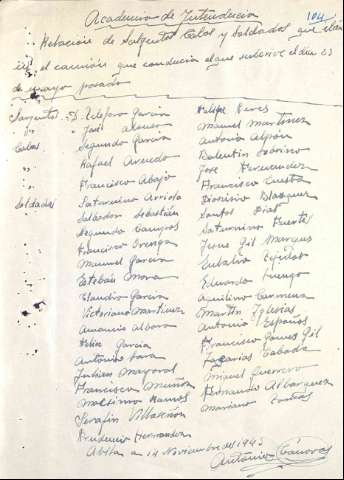 Academia de Intendencia
104
Relación de Sargentos Cabos y Soldados que iban
en el camión que conducía el que subscribe el día
de mayo pasado
Sargentos D. Telesforo Garcia
" José Alonso
Cabos Segundo Garcia
" Rafael Acevedo
" Francisco Abajo
Soldados Saturnino Arriola
Salbador Sebastián
Segundo Campos
Francisco
Manuel Garcia
Esteban Mora
Claudio Garcia
Victoriano Martinez
Amancio Albaro
Felix Garcia
Antonio Lara
Julian Mayoral
Francisco Muñoz
Maximo Ramos
Serafin Villacañon
Prudencio Hernandez
Felipe
Manuel Martinez
Antonio
Balentin Sobrino
José Fernandez
Francisco Cuesta
Dionisio Blazquez
Santos Diaz
Saturnino Puente
Gil Marques
Eduardo
Aquilino Carmena
Martin Iglesias
Antonio Español
Francisco Gomes Gil
Zacarias Labada
Miguel Guerrero
Fernando Alborquez
Mariano
Abila a 14 Noviembre del 1943
Antonio Cánovas